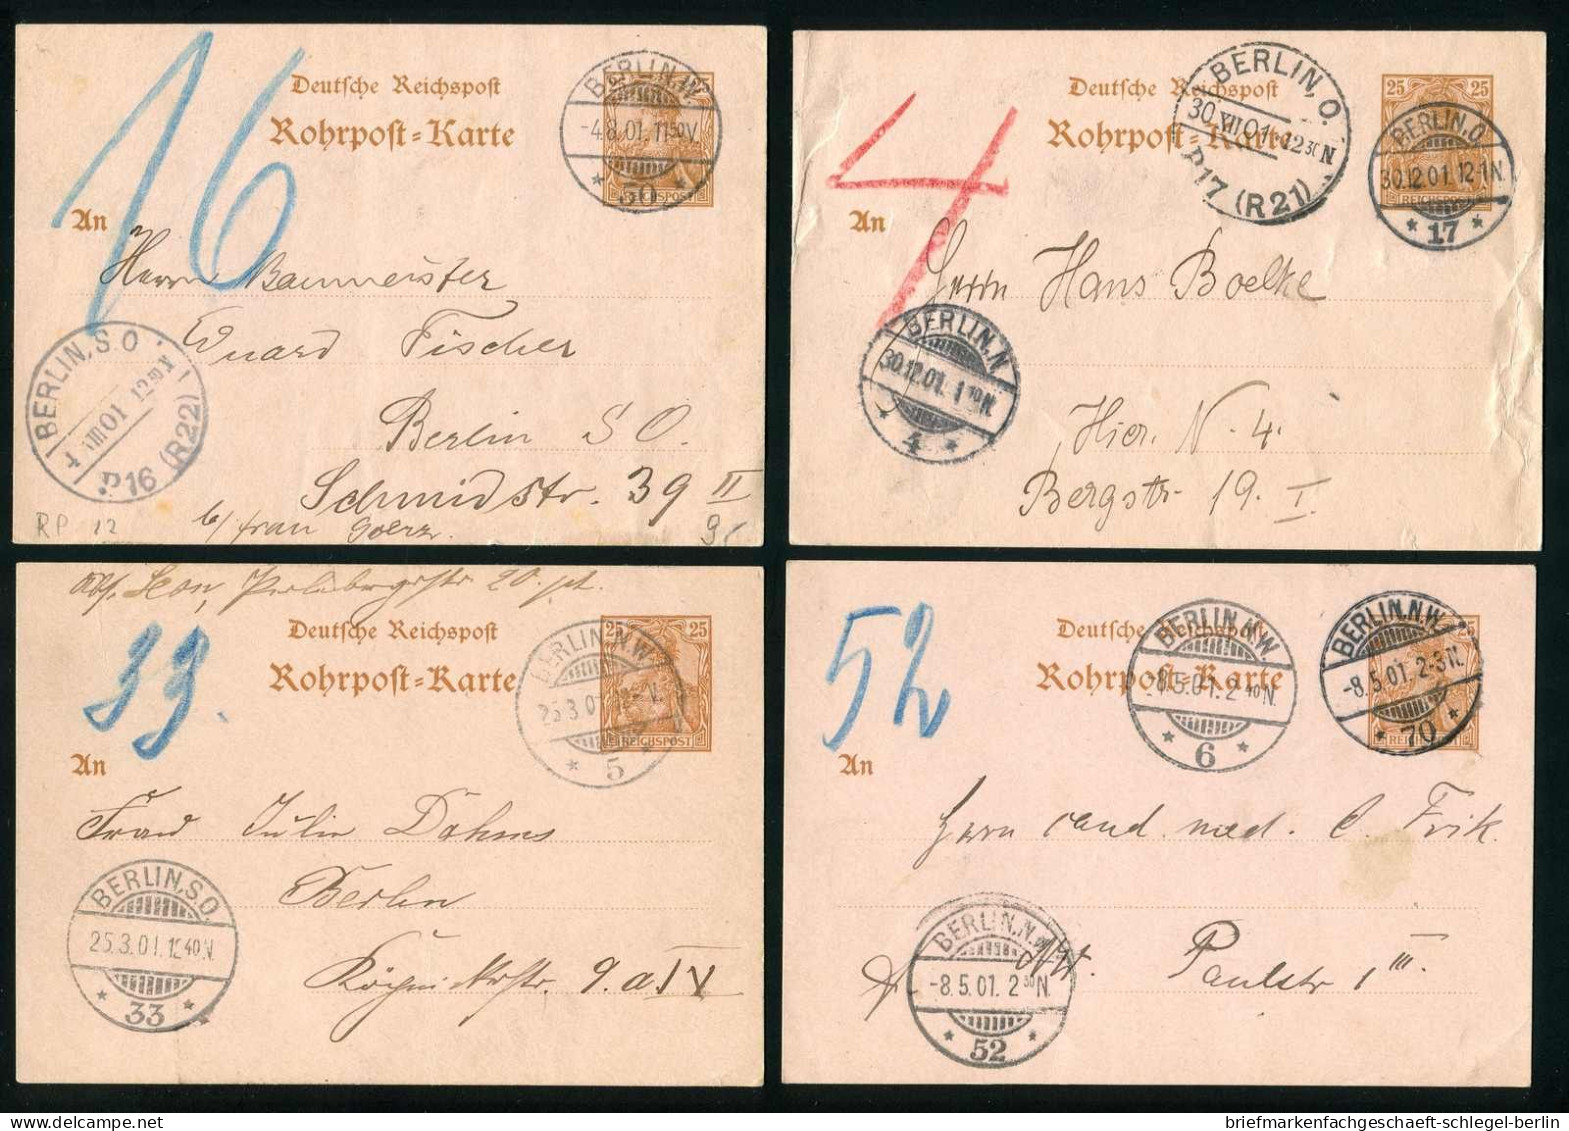 16
Deutsche Reichspost
Rohrpost=Karte
25
BERLIN.W.
-4.8.01.11 50V.
* 50 *
REICHSPOST
An
Herrn Baumeister
Eduard Fischer
BERLIN, S.O.
VIII 01
P16 (R22)
Berlin S O.
Schmidstr. 39 II
b/ frau Goerz.
RP 12
4
Deutsche Reichspost
Rohrpost=Karte
BERLIN, O.
30.XII 01. 12 30 N
P17 (R21)
25 25
BERLIN.O
30.12.01. 12-1N.
* 17 *
REICHSPOST
An
Herrn Hans Boelke
BERLIN,N
30.12.01. 1 10N.
* 4 *
Hier. N. 4.
Bergstr. 19. I.
20. pt.
33.
Deutsche Reichspost
Rohrpost=Karte
25 25
BERLIN,N.W.
25.3.01
* 5
REICHSPOST
An
Frau Julie Döhms
Berlin
BERLIN,S.O.
25.3.01. 12 40N.
* 33 *
9. a IV
52
Deutsche Reichspost
Rohrpost=Karte
BERLIN N.W.
-8.5.01. 2 40N.
* 6 *
25
BERLIN.N.W.
-8.5.01. 2-3N.
* 70 *
An
Herrn cand. med. C. Frik.
BERLIN.N.W.
-8.5.01. 2 50N.
* 52 *
NW. Paulstr 1 III.
briefmarkenfachgeschaeft-schlegel-berlin